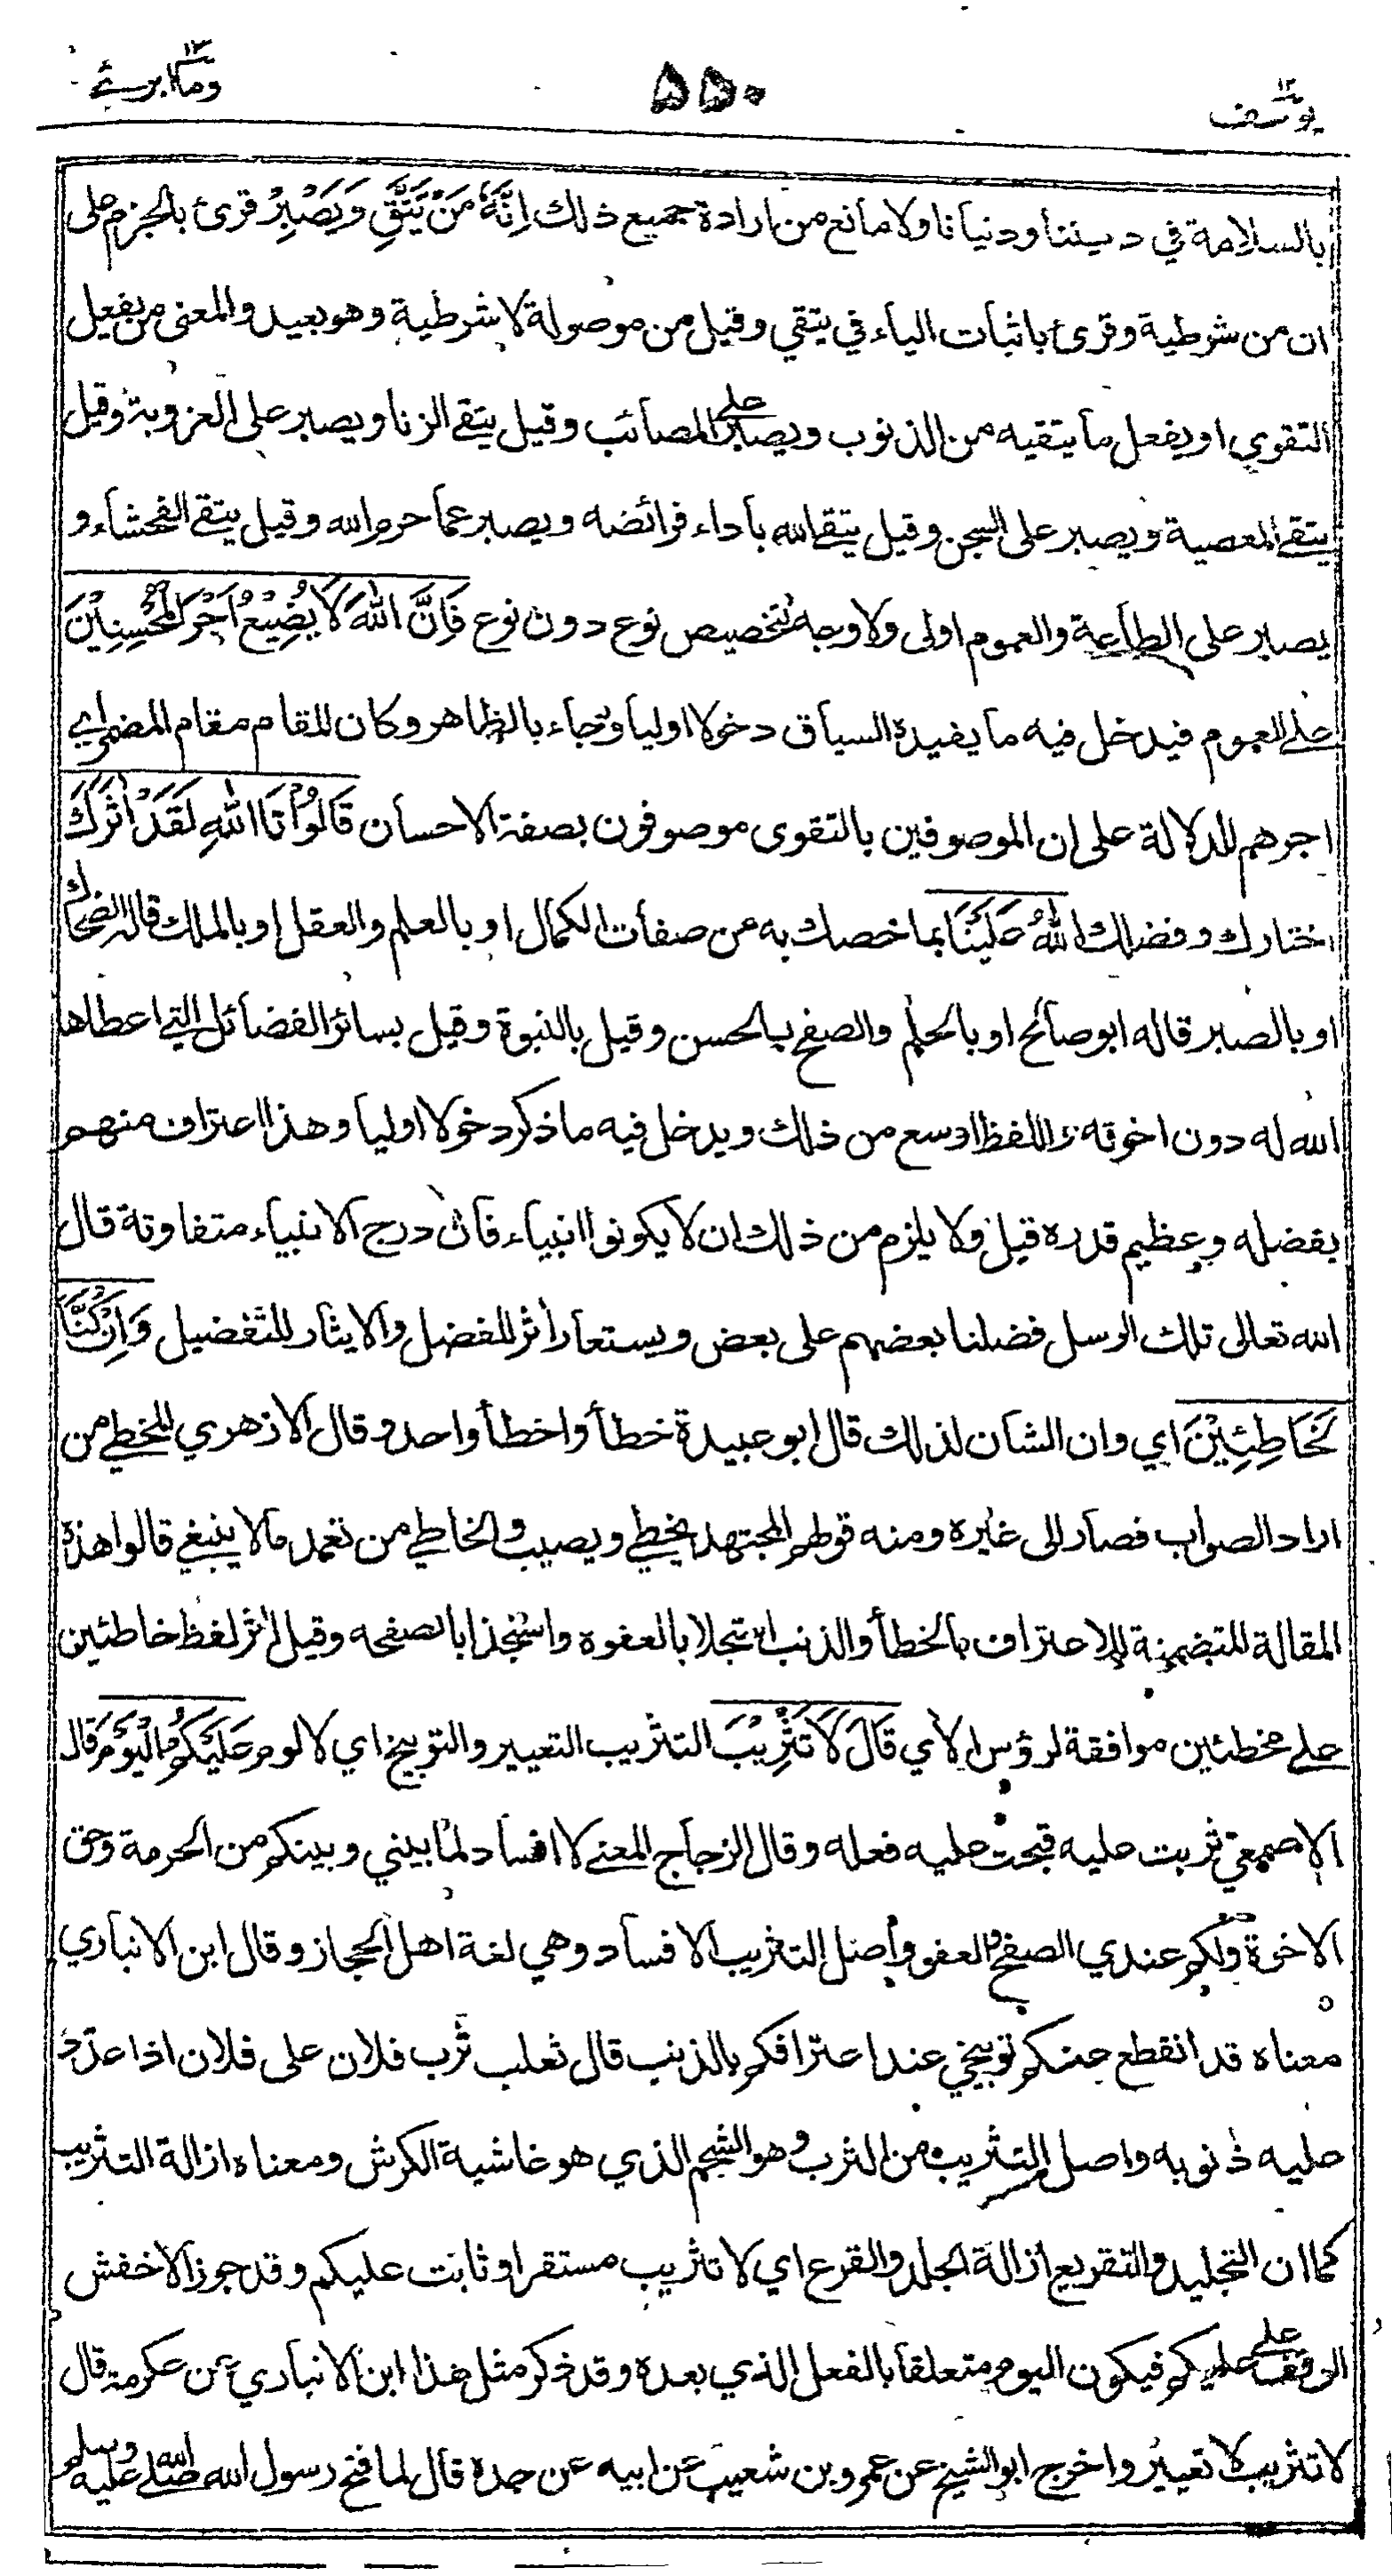 يوسف ١٢
٥٥٠
وما ابرئ ١٣
بالسلامة في ديننا ودنيانا ولا مانع من ارادة جميع ذلك اِنَّهٗ مَنْ يَتَّقِ وَيَصْبِرْ قرئ بالجزم على
ان من شرطية وقرئ باثبات الياء في يتقي وقيل من موصولة لا شرطية وهو بعيد والمعنى من يفعل
التقوى او يفعل ما يتقيه من الذنوب ويصبر على المصائب وقيل يتقي الزنا ويصبر على العزوبة وقيل
يتقي المعصية ويصبر على السجن وقيل يتقي الله بأداء فرائضه ويصبر عما حرم الله وقيل يتقي الفحشاء و
يصبر على الطاعة والعموم اولى ولا وجه لتخصيص نوع دون نوع فَاِنَّ اللّٰهَ لَا يُضِيْعُ اَجْرَ الْمُحْسِنِيْنَ
على العموم فيدخل فيه ما يفيده السياق دخولا اوليا وجاء بالظاهر وكان المقام مقام المضمر اي
اجرهم للدلالة على ان الموصوفين بالتقوى موصوفون بصفة الاحسان قَالُوْا تَاللّٰهِ لَقَدْ اٰثَرَكَ
اختارك وفضلك اللّٰهُ عَلَيْنَا بما خصك به من صفات الكمال او بالعلم والعقل او بالملك قاله الضحاك
او بالصبر قاله ابو صالح او بالحلم والصفح بالحسن وقيل بالنبوة وقيل بسائر الفضائل التي اعطاها
الله له دون اخوته واللفظ اوسع من ذلك ويدخل فيه ما ذكر دخولا اوليا وهذا اعتراف منهم
بفضله وعظيم قدره قيل ولا يلزم من ذلك ان لا يكونوا انبياء فان درج الانبياء متفاوتة قال
الله تعالى تلك الرسل فضلنا بعضهم على بعض ويستعار أثر للفضل والايثار للتفضيل وَاِنْ كُنَّا
لَخَاطِئِيْنَ اي وان الشان لذلك قال ابو عبيدة خطأ واخطأ واحد وقال الازهري المخطي من
اراد الصواب فصار الى غيره ومنه قولهم المجتهد يخطي ويصيب والخاطي من تعمد ما لا ينبغي قالوا هذه
المقالة المتضمنة للاعتراف بالخطأ والذنب استجلابا لعفوه واستجذابا لصفحه وقيل اٰثر لفظ خاطئين
على مخطئين موافقة لرؤس الاٰي قَالَ لَا تَثْرِيْبَ التثريب التعيير والتوبيخ اي لا لوم عَلَيْكُمُ الْيَوْمَ قال
الاصمعي ثربت عليه قبحت عليه فعله وقال الزجاج المعنى لا افساد لما بيني وبينكم من الحرمة وحق
الاخوة ولكم عندي الصفح والعفو واصل التثريب الافساد وهي لغة اهل الحجاز وقال ابن الانباري
معناه قد انقطع عنكم توبيخي عند اعترافكم بالذنب قال ثعلب ثرب فلان على فلان اذا عدّد
عليه ذنوبه واصل التثريب من الثرب وهو الشحم الذي هو غاشية الكرش ومعناه ازالة التثريب
كما ان التجليد والتقريع ازالة الجلد والقرع اي لا تثريب مستقر او ثابت عليكم وقد جوز الاخفش
الوقف على عليكم فيكون اليوم متعلقا بالفعل الذي بعده وقد ذكر مثل هذا ابن الانباري عن عكرمة قال
لا تثريب لا تعيير واخرج ابو الشيخ عن عمرو بن شعيب عن ابيه عن جده قال لما فتح رسول الله صلى الله عليه وسلم